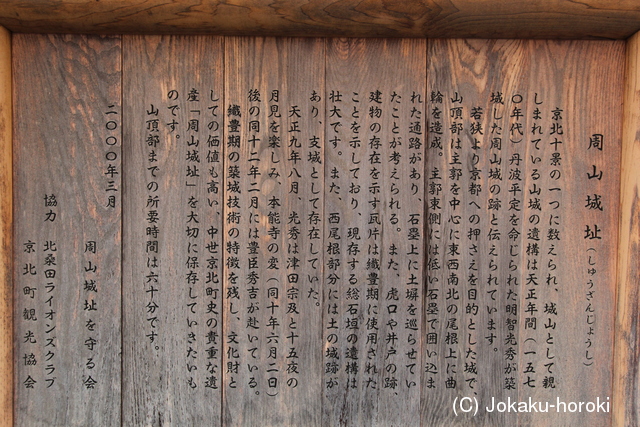 周山城址（しゅうざんじょうし）
京北十景の一つに数えられ、城山として親
しまれている山城の遺構は天正年間（一五七
〇年代）丹波平定を命じられた明智光秀が築
城した周山城の跡と伝えられています。
若狭より京都への押さえを目的とした城で
山頂部は主郭を中心に東西南北の尾根上に曲
輪を造成。主郭東側には低い石塁で囲い込ま
れた通路があり、石塁上に土塀を巡らせてい
たことが考えられる。また、虎口や井戸の跡、
建物の存在を示す瓦片は織豊期に使用された
ことを示しており、現存する総石垣の遺構は
壮大です。また、西尾根部分には土の城跡が
あり、支城として存在していた。
天正九年八月、光秀は津田宗及と十五夜の
月見を楽しみ、本能寺の変（同十年六月二日）
後の同十二年二月には豊臣秀吉が赴いている。
織豊期の築城技術の特徴を残し、文化財と
しての価値も高い、中世京北町史の貴重な遺
産「周山城址」を大切に保存していきたいも
のです。
山頂部までの所要時間は六十分です。
二〇〇〇年三月
周山城址を守る会
協力 北桑田ライオンズクラブ
京北町観光協会
(C) Jokaku-horoki